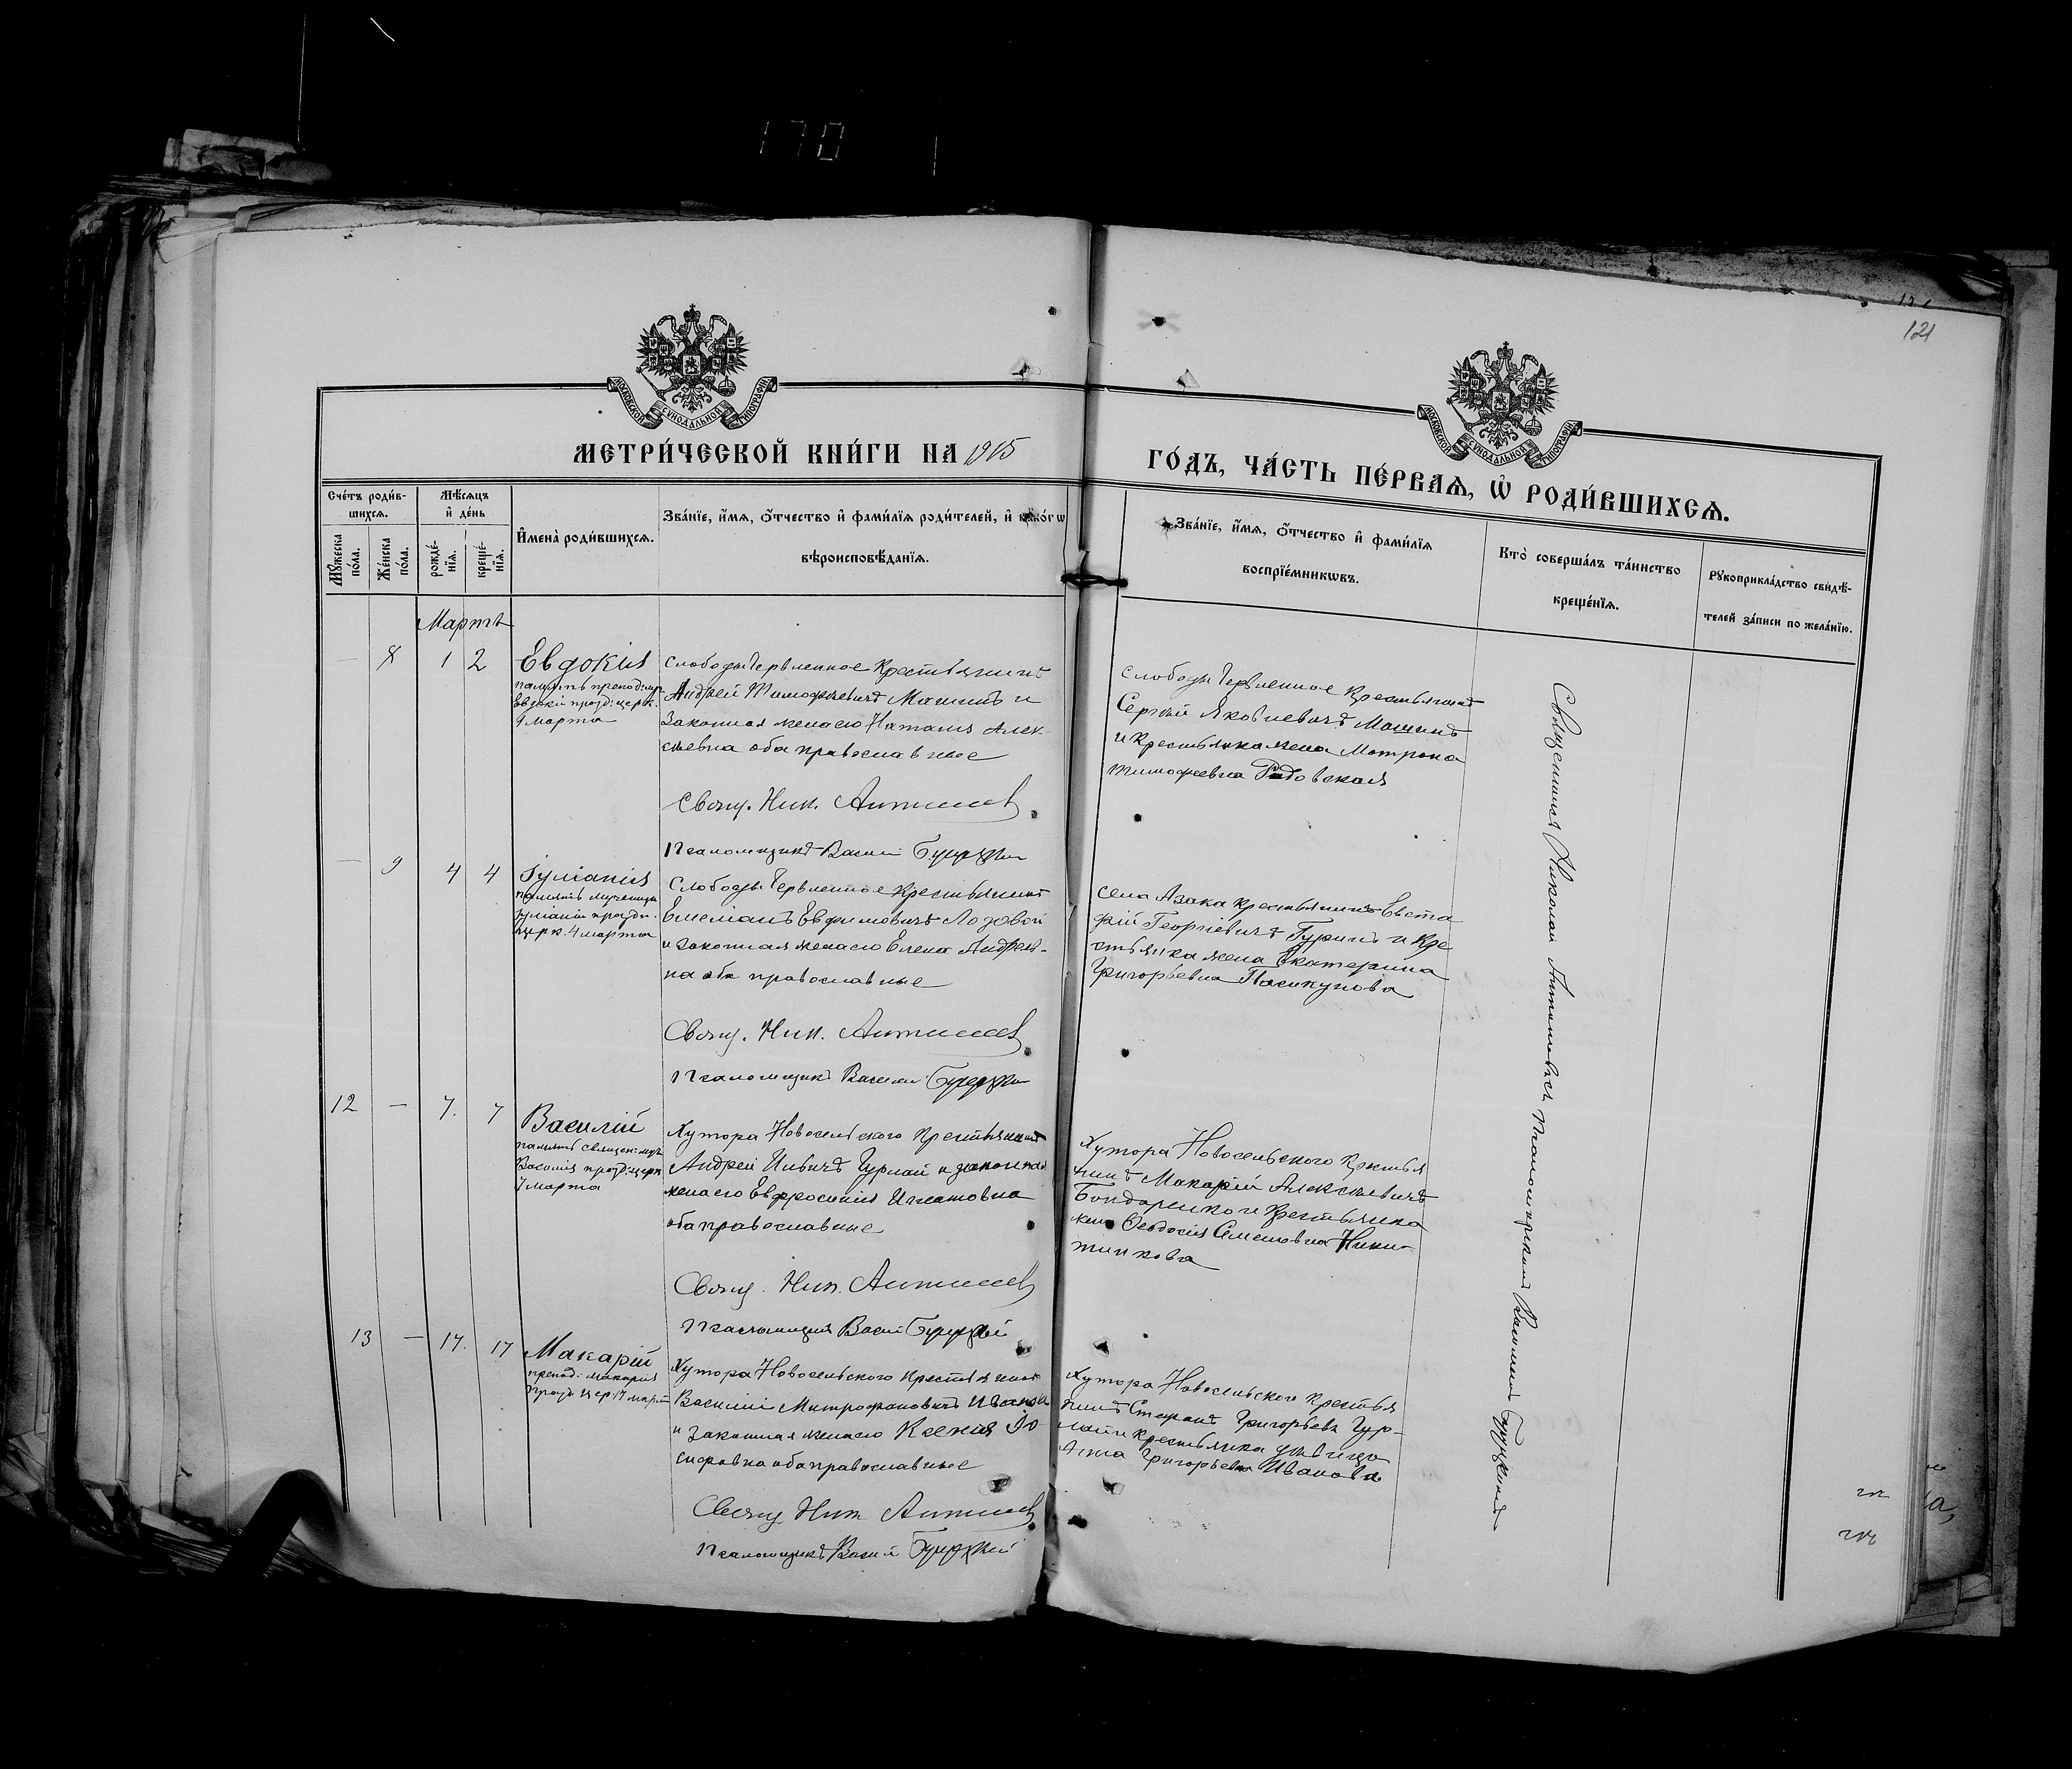 170
121
МОСКОВСКОЙ СѴНОДАЛЬНОЙ ТИПОГРАФІИ
МОСКОВСКОЙ СѴНОДАЛЬНОЙ ТИПОГРАФІИ
МЕТРИ́ЧЕСКОЙ КНИ́ГИ НА 1915
ГО́ДЪ, ЧА́СТЬ ПЕ́РВАѦ, Ѡ҆ РОДИ́ВШИХСѦ.
Сче́тъ роди́в-
шихсѧ.
Мꙋ́жеска по́ла.
Же́нска по́ла.
Мѣ́сѧцъ
и҆ де́нь
рожде́-
нїѧ.
креще́-
нїѧ.
И҆мена̀ роди́вшихсѧ.
Зва́нїе, и҆́мѧ, ѻ҆́тчество и҆ фами́лїѧ роди́телей, и҆ како́гѡ
вѣроисповѣ́данїѧ.
Зва́нїе, и҆́мѧ, ѻ҆́тчество и҆ фами́лїѧ
воспрїе́мникѡвъ.
Кто̀ соверша́лъ та́инство
креще́нїѧ.
Рꙋкоприкла́дство свидѣ́-
телей за́писи по жела́нїю.
Мартъ
— 8 1 2
Евдокія
память препод: муч.
Евдокіи празд: церк.
Марта
Слободы Червленное Крестьянинъ
Андрей Тимофѣевичъ Машинъ и
законная жена его Наталія Алек-
сѣевна оба православные
Свящ. Ник. Антоновъ
Псаломщикъ Василій
Слободы Червленное Крестьянинъ
Сергѣй Яковлевичъ Машинъ
и Крестьянка жена Матрона
Тимофеевна Радовская
— 9 4 4
Іуліанія
память мученицы
Іуліаніи празд.
церк. 4 марта
Слободы Червленное Крестьянинъ
Емеліанъ Евфимовичъ Лозовой
и законная жена его Елена Андреев-
на оба православные
Свящ. Ник. Антоновъ
Псаломщикъ Василій
села Азака крестьянинъ Евста
фій Георгіевичъ Гуринъ и Кре
стьянка жена Екатерина
Григорьевна Пасикунова
12 — 7. 7
Василій
память священ: муч.
Василія празд: церк.
7 марта
Хутора Новосельского Крестьянинъ
Андрей Ильичъ Гурлай и законная
жена его Евфросинія Игнатовна
оба православные
Свящ. Ник. Антоновъ
Псаломщикъ Васил
Хутора Новосельского Крестья
нинъ Макарій Алексѣевичъ
Бондаренко и Крестьянка
жена Ѳеодосія Семеновна Ники-
тинкова
13 — 17. 17
Макарій
препод: Макарія
празд цер: 17 март
Хутора Новосельского Крестьянинъ
Василій Митрофановичъ Ивановъ
и законная жена его Ксенія Іо-
сифовна оба православные
Свящ Ник Антоновъ
Псаломщикъ Василій
Хутора Новосельского Крестья
нинъ Стефанъ Григорьевъ Гур-
лай и крестьянка дѣвица
Анна Григорьевна Иванова
Священникъ Николай Антоновъ съ псаломщикомъ Василіемъ